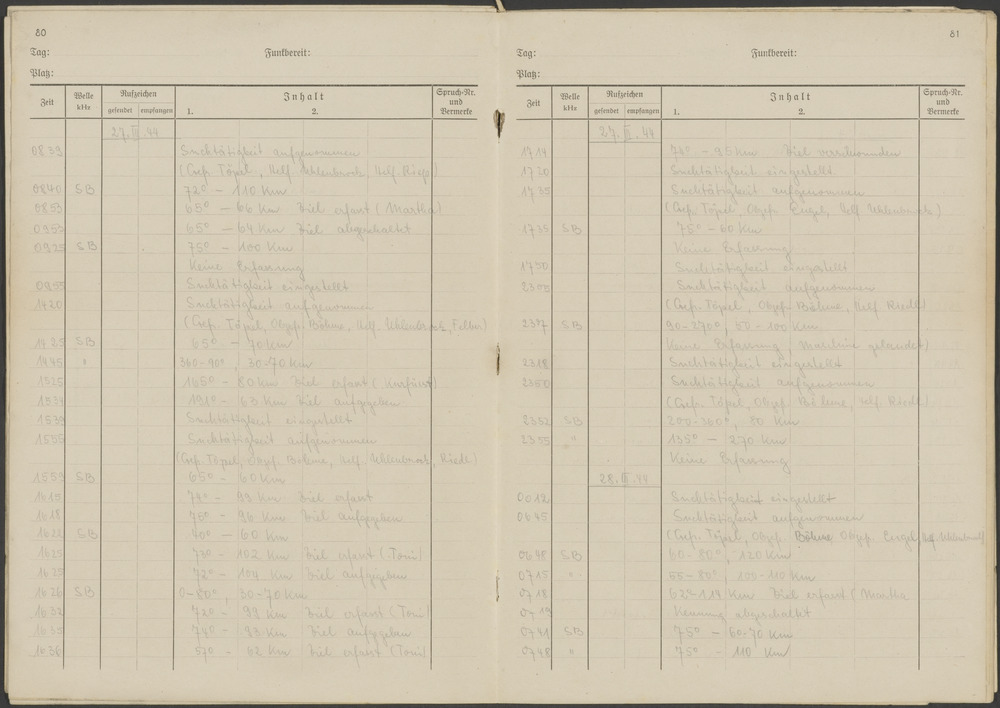 80
Tag:
Funkbereit:
Platz:
Zeit
Welle kHz
Rufzeichen
gesendet empfangen
Inhalt
1. 2.
Spruch-Nr. und Vermerke
27. III. 44
0839 Suchtätigkeit aufgenommen
(Gefr. Töpel, Helf. Uhlenbrock, Helf.
0840 SB 72° – 110 Km
0853 65° – 66 Km Ziel erfasst (Martha)
0953 65° – 64 Km Ziel abgeschaltet
0925 SB 75° – 100 Km
Keine Erfassung
0955 Suchtätigkeit eingestellt
1420 Suchtätigkeit aufgenommen
(Gefr. Töpel, Obgfr. Böhme, Helf. Uhlenbrock, Felber)
1425 SB 65° – 70 Km
1445 " 360–90°, 30–70 Km
1525 165° – 80 Km Ziel erfasst (Kurfürst)
1534 191° – 63 Km Ziel aufgegeben
1539 Suchtätigkeit eingestellt
1555 Suchtätigkeit aufgenommen
(Gefr. Töpel, Obgfr. Böhme, Helf. Uhlenbrock, Riedl)
1559 SB 65° – 60 Km
1615 74° – 99 Km Ziel erfasst
1618 70° – 96 Km Ziel aufgegeben
1622 SB 70° – 60 Km
1625 730 – 102 Km Ziel erfasst (Toni)
1625 72° – 104 Km Ziel aufgegeben
1626 SB 0–80°, 30–70 Km
1632 72° – 99 Km Ziel erfasst (Toni)
1635 74° – 93 Km Ziel aufgegeben
1636 570 – 62 Km Ziel erfasst (Toni)
81
Tag:
Funkbereit:
Platz:
Zeit
Welle kHz
Rufzeichen
gesendet empfangen
Inhalt
1. 2.
Spruch-Nr. und Vermerke
27. III. 44
1714 74° – 95 Km Ziel verschwunden
1720 Suchtätigkeit eingestellt
1735 Suchtätigkeit aufgenommen
(Gefr. Töpel, Obgfr. Engel, Helf. Uhlenbrock)
1735 SB 75° – 60 Km
Keine Erfassung
1750 Suchtätigkeit eingestellt
2305 Suchtätigkeit aufgenommen
(Gefr. Töpel, Obgfr. Böhme, Helf. Riedl)
2307 SB 90–270°, 50–100 Km
Keine Erfassung, Maschine gelandet)
2318 Suchtätigkeit eingestellt
2350 Suchtätigkeit aufgenommen
(Gefr. Töpel, Obgfr. Böhme, Helf. Riedl)
2352 SB 200–360°, 80 Km
2355 " 135° – 270 Km
Keine Erfassung
28. III. 44
0012 Suchtätigkeit eingestellt
0645 Suchtätigkeit aufgenommen
(Gefr. Töpel, Obgfr. Böhme, Obgfr. Engel, Helf. Uhlenbrock)
0648 SB 60–80°, 120 Km
0715 " 55–80°, 100–110 Km
0718 62°–114 Km Ziel erfasst (Martha
0719 Kennung abgeschaltet
0741 SB 75° – 60–70 Km
0748 " 75° – 110 Km